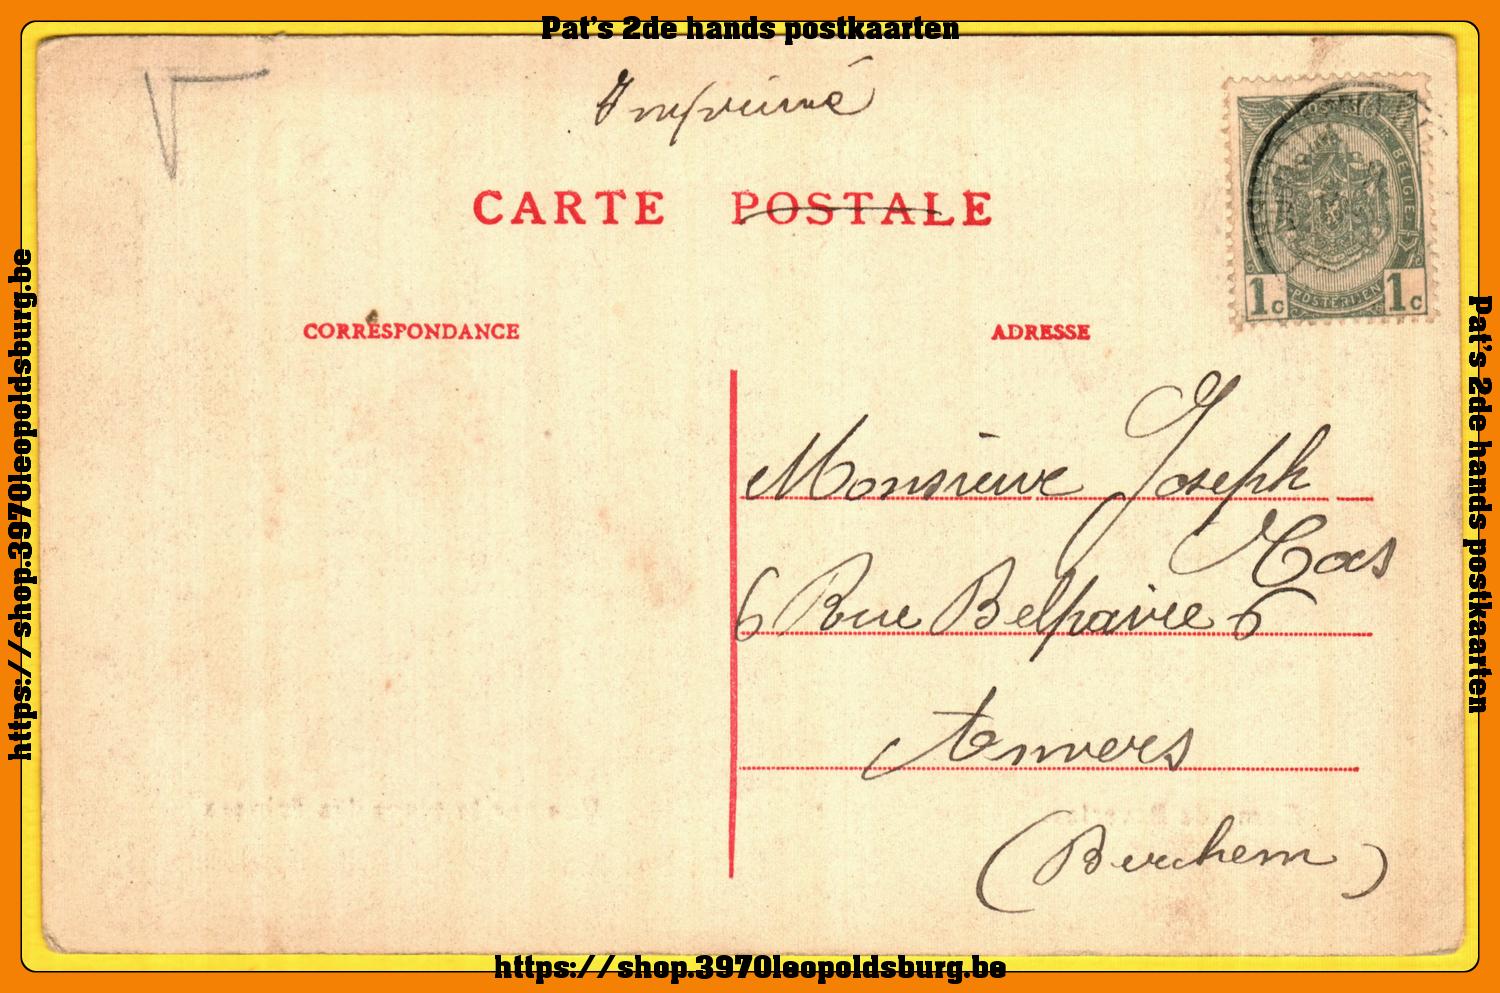 Pat's 2de hands postkaarten
Imprimé
CARTE POSTALE
CORRESPONDANCE
ADRESSE
BELGIE
1c
POSTERIJEN
1c
Monsieur Joseph
6 Rue Belpaire 6
Anvers
(Berchem)
https://shop.3970leopoldsburg.be
Pat's 2de hands postkaarten
https://shop.3970leopoldsburg.be